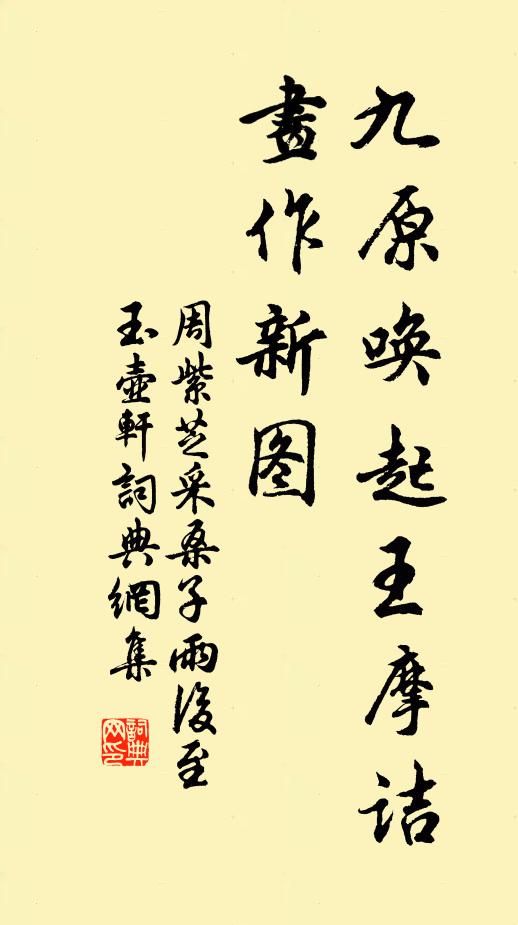 九原唤起王摩诘
畫作新图
周紫芝采桑子雨後至
玉壺軒詞典網集
詞典网印